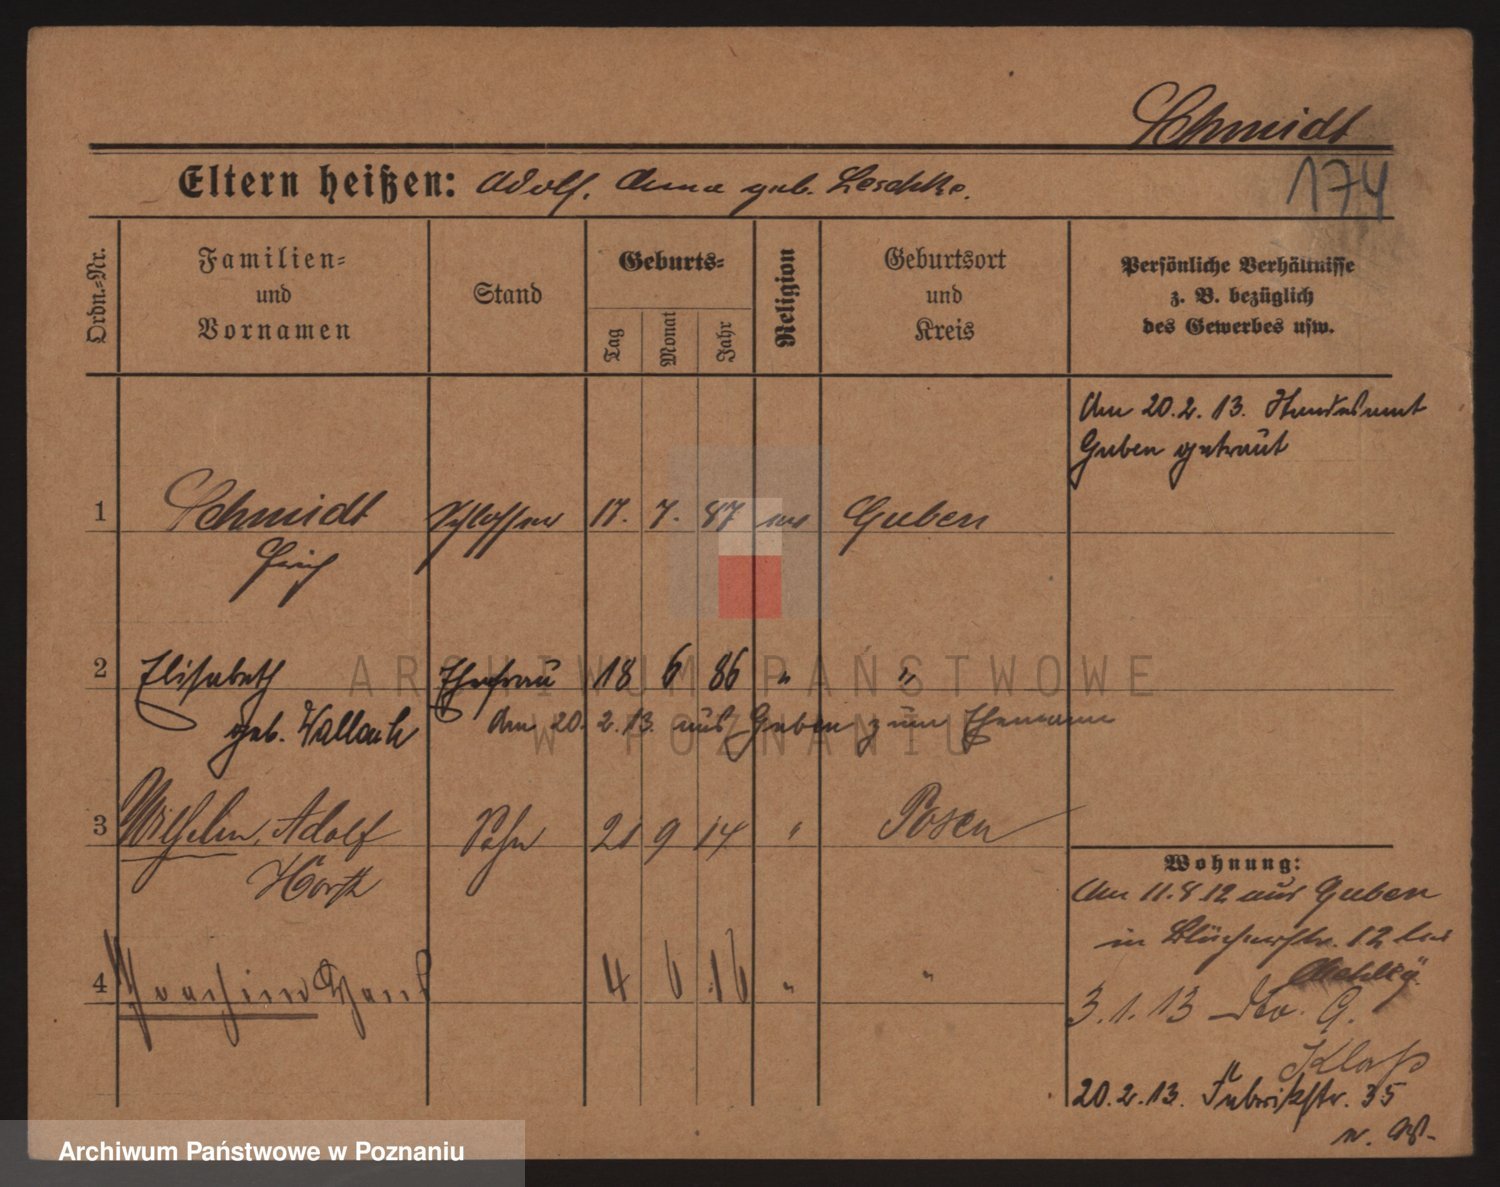 Schmidt
174
Eltern heißen: Adolf, Anna geb. Leschke.
Ordn.-Nr.
Familien- und Vornamen
Stand
Geburts-
Tag
Monat
Jahr
Religion
Geburtsort und Kreis
Persönliche Verhältnisse
z. B. bezüglich
des Gewerbes usw.
Am 20.2.13. Standesamt
Guben getraut
1 Schmidt Schlosser 17. 7. 87 ev Guben
Erich
2 Elisabeth Ehefrau 18 6 86 " "
geb. Wallach Am 20.2.13. aus Guben zum Ehemann
3 Wilhelm, Adolf Sohn 21 9 14 " Posen
Horst
4 Joachim Hans 4 6 16 " "
Wohnung:
Am 11.8.12 aus Guben
in Blücherstr. 12 bei
3.1.13 dto. G.
Klaß
20.2.13. Fabrikstr. 35
n. W.
ARCHIWUM PAŃSTWOWE
W POZNANIU
Archiwum Państwowe w Poznaniu